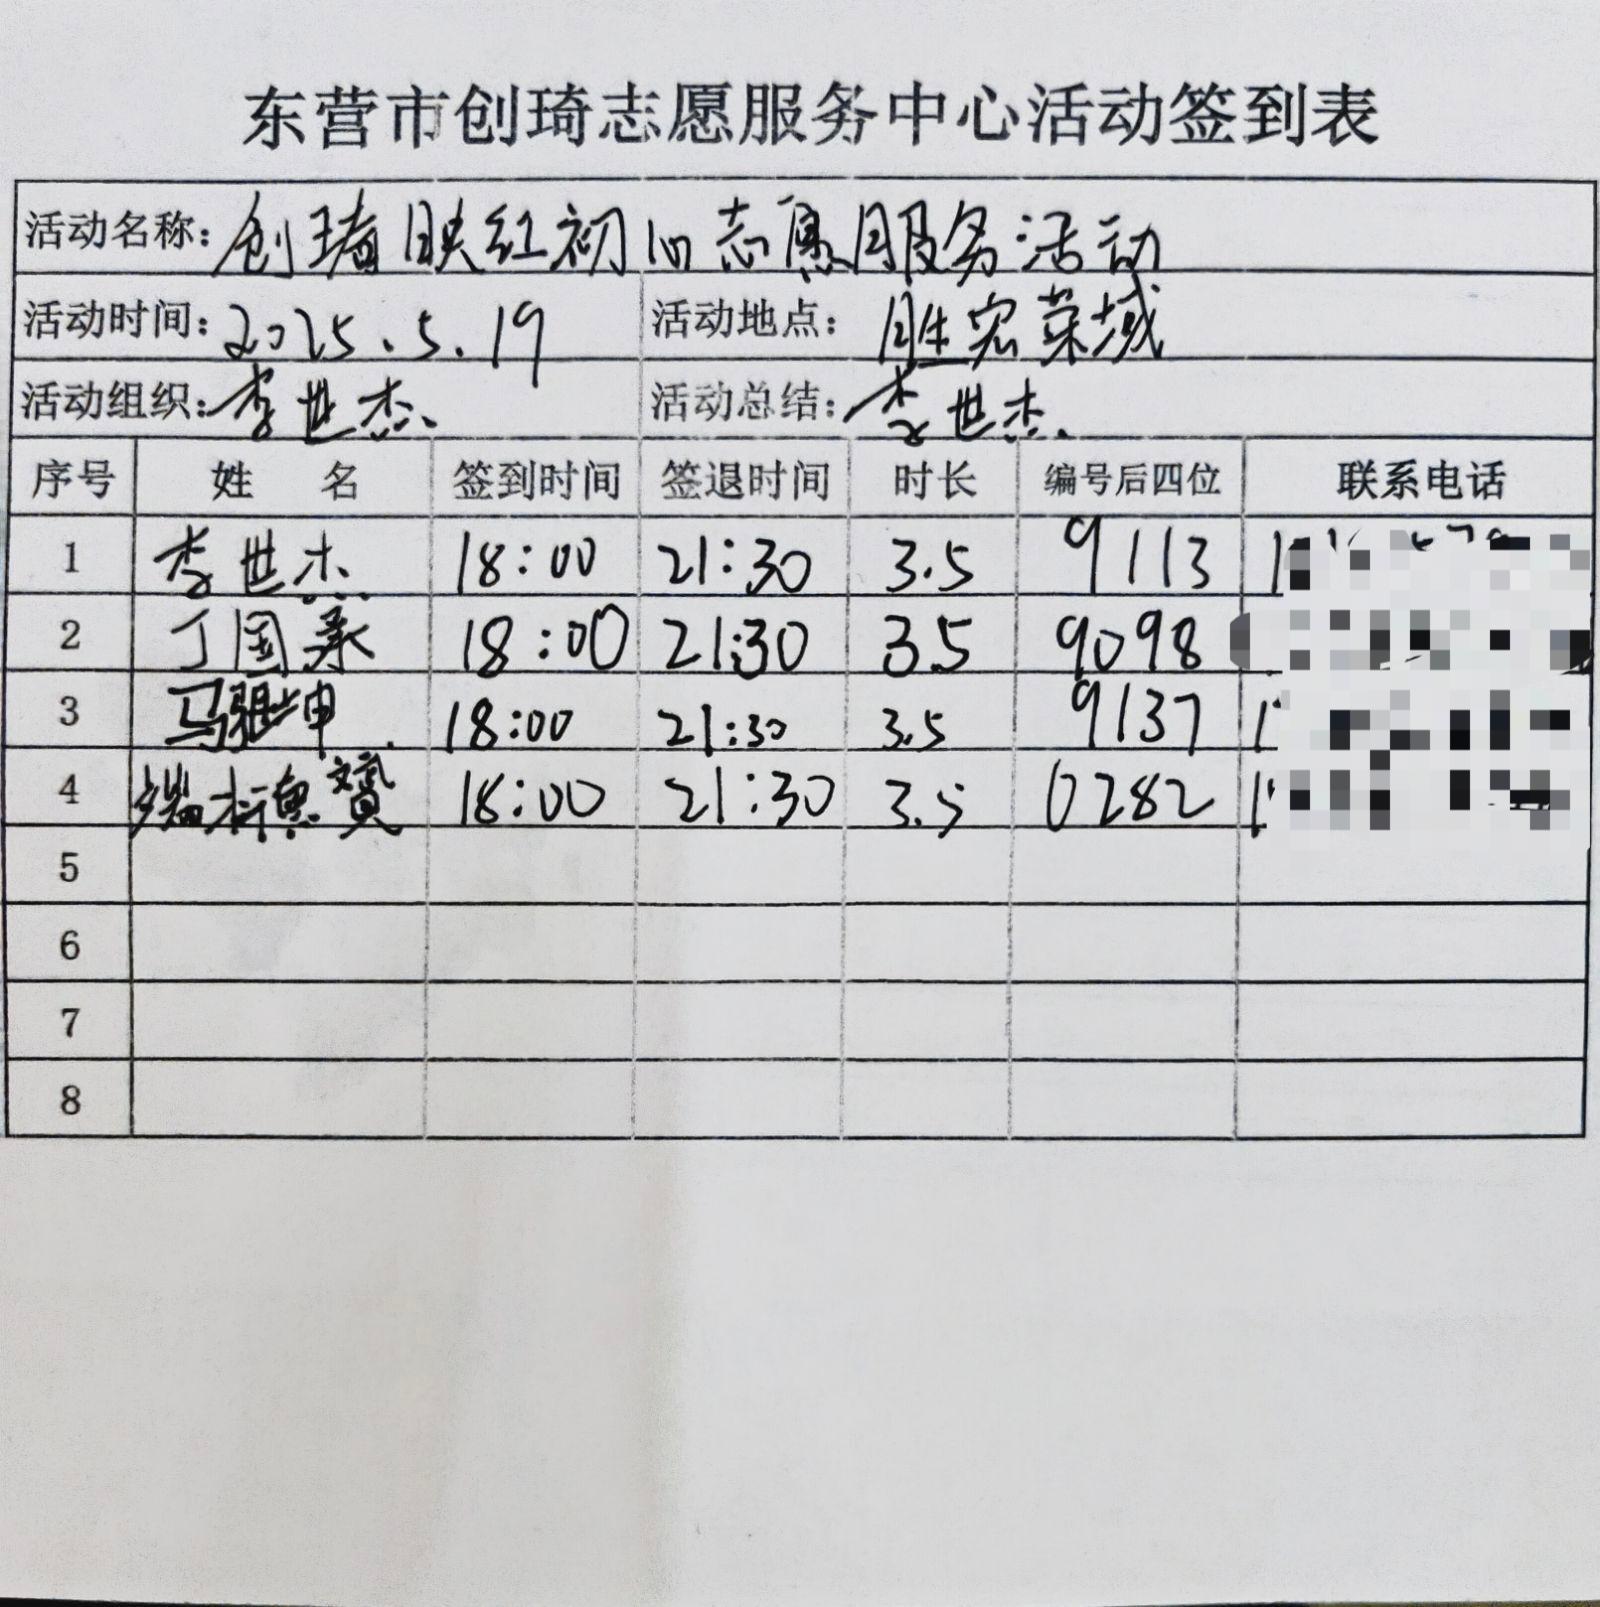 东营市创琦志愿服务中心活动签到表
活动名称：创琦映红初心志愿服务活动
活动时间：2025.5.19 活动地点：胜宏荣域
活动组织：李世杰 活动总结：李世杰
序号 姓 名 签到时间 签退时间 时长 编号后四位 联系电话
1 李世杰 18:00 21:30 3.5 9113
2 丁国承 18:00 21:30 3.5 9098
3 马 坤 18:00 21:30 3.5 9137
4 18:00 21:30 3.5 0282
5
6
7
8